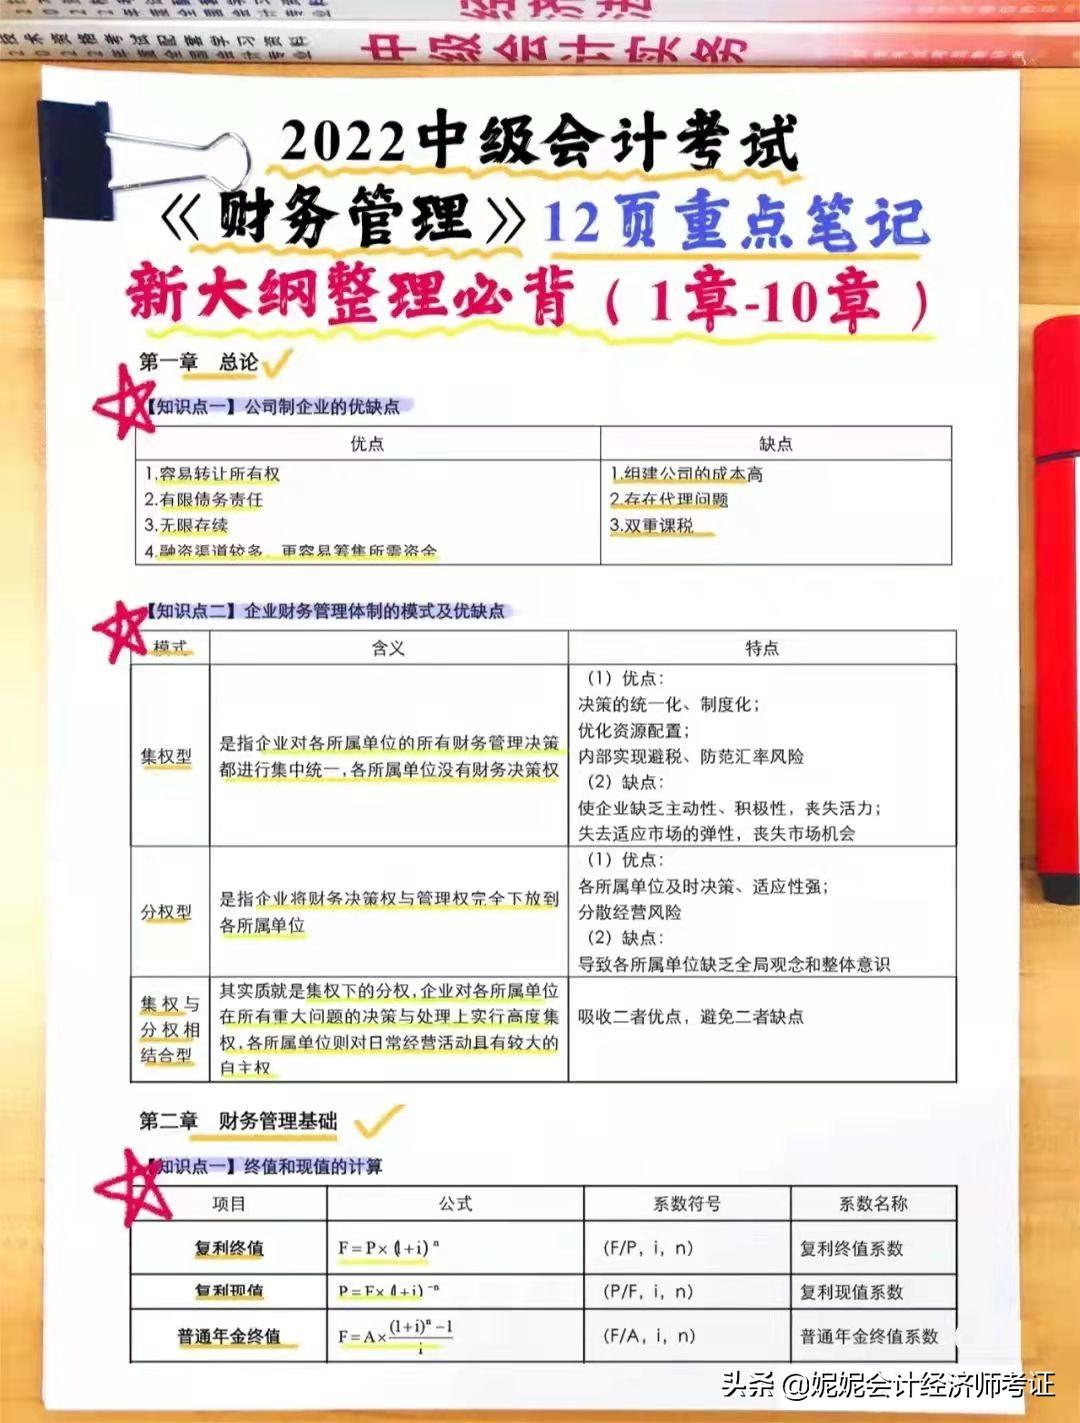 经济法
中级会计实务
2022中级会计考试
《财务管理》12页重点笔记
新大纲整理必背（1章-10章）
第一章 总论
【知识点一】公司制企业的优缺点
优点 缺点
1.容易转让所有权 1.组建公司的成本高
2.有限债务责任 2.存在代理问题
3.无限存续 3.双重课税
4.融资渠道较多，更容易筹集所需资金
【知识点二】企业财务管理体制的模式及优缺点
模式 含义 特点
集权型
是指企业对各所属单位的所有财务管理决策
都进行集中统一，各所属单位没有财务决策权
（1）优点：
决策的统一化、制度化；
优化资源配置；
内部实现避税、防范汇率风险
（2）缺点：
使企业缺乏主动性、积极性，丧失活力；
失去适应市场的弹性，丧失市场机会
分权型
是指企业将财务决策权与管理权完全下放到
各所属单位
（1）优点：
各所属单位及时决策、适应性强；
分散经营风险
（2）缺点：
导致各所属单位缺乏全局观念和整体意识
集权与
分权相
结合型
其实质就是集权下的分权，企业对各所属单位
在所有重大问题的决策与处理上实行高度集
权，各所属单位则对日常经营活动具有较大的
自主权
吸收二者优点，避免二者缺点
第二章 财务管理基础
【知识点一】终值和现值的计算
项目 公式 系数符号 系数名称
复利终值 F=P×(1+i)ⁿ (F/P，i，n) 复利终值系数
复利现值 P=F×(1+i)⁻ⁿ (P/F，i，n) 复利现值系数
普通年金终值 F=A×((1+i)ⁿ-1)/i (F/A，i，n) 普通年金终值系数
头条 @妮妮会计经济师考证